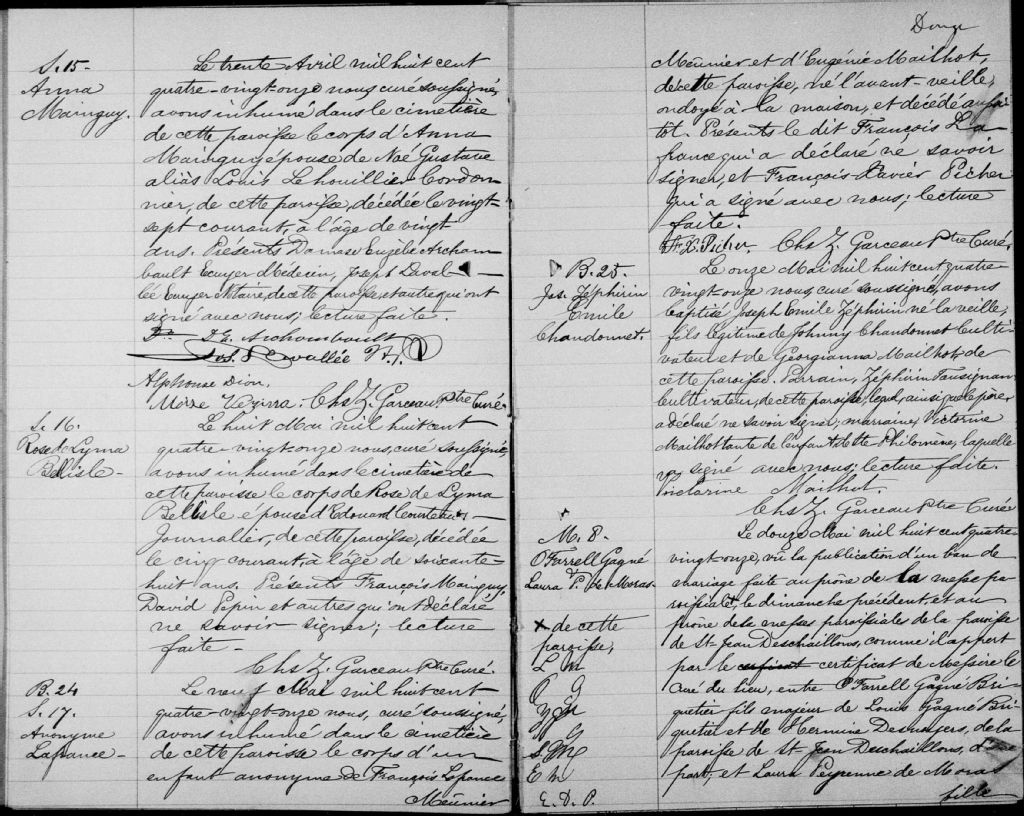 S. 15-
Anna
Mainguy.
Le trente Avril mil huit cent
quatre-vingt-onze nous, curé soussigné,
avons inhumé dans le cimetière
de cette paroisse le corps d'Anna
Mainguy épouse de Noé Gustave
aliàs Louis Lehouillier Cordon
nier, de cette paroisse, décédée le vingt-
sept courant, à l'âge de vingt
ans. Présents Damase Eugèle Archam
bault Ecuyer Médecin, Joseph Laval-
lée Ecuyer Notaire, de cette paroisse, et autre qui ont
signé avec nous; lecture faite.
Dr. D. E. Archambault
Jos. Lavallée N. P.
Alphonse Dion.
Moïse Vezina. Chs Z. Garceau Ptre Curé.
S. 16.
Rose de Lyma
Bellisle-
Le huit Mai mil huit cent
quatre-vingt-onze nous, curé soussigné,
avons inhumé dans le cimetière de
cette paroisse le corps de Rose de Lyma
Bellisle épouse d'Edouard
Journalier, de cette paroisse, décédée
le cinq courant, à l'âge de soixante-
huit ans. Présents François Mainguy,
David Pepin et autres qui ont déclaré
ne savoir signer; lecture
faite-
Chs Z. Garceau Ptre Curé.
B. 24
S. 17.
Anonyme
Lafrance-
Le neuf Mai mil huit cent
quatre-vingt-onze nous, curé soussigné,
avons inhumé dans le cimetière
de cette paroisse le corps d'un
enfant anonyme de François Lafrance
Meunier
Douze
Meunier et d'Eugénie Mailhot,
de cette paroisse, né l'avant-veille,
ondoyé à la maison, et décédé aussi-
tôt. Présents le dit François La
france qui a déclaré ne savoir
signer, et François-Xavier Picher
qui a signé avec nous; lecture
faite.
F. X. Picher. Chs Z. Garceau Ptre Curé.
B. 25.
Jos. Zéphirin
Emile
Chandonnet.
Le onze Mai mil huit cent quatre-
vingt-onze nous, curé soussigné, avons
baptisé Joseph Emile Zéphirin né la veille,
fils légitime de Johnny Chandonnet Culti-
vateur et de Georgianna Mailhot, de
cette paroisse. Parrain, Zéphirin Tousignan
Cultivateur, de cette paroisse, lequel, ainsi que le père,
a déclaré ne savoir signer; marraine, Victorine
Mailhot tante de l'enfant, de Ste Philomène, laquelle
a signé avec nous; lecture faite.
Victorine Mailhot.
Chs Z. Garceau Ptre Curé
M. 8.
O'Farrell Gagné
&
Laura P. de Moras
x de cette
paroisse,
L M
O G
J G
S M
E M
E. D. P.
Le douze Mai mil huit cent quatre-
vingt-onze, vû la publication d'un ban de
mariage faite au prône de la messe pa
roissiale x, le dimanche précédent, et au
prône de la messes paroissiales de la paroisse
de St-Jean Deschaillons, comme il appert
par le certificat de Messire le
Curé du lieu, entre O'Farrell Gagné Bri-
quetier fils majeur de Louis Gagné Bri
quetier et de Hermine Desruisseaux, de la
paroisse de St-Jean Deschaillons, d'une
part; et Laura Peyrenne de Moras
fille